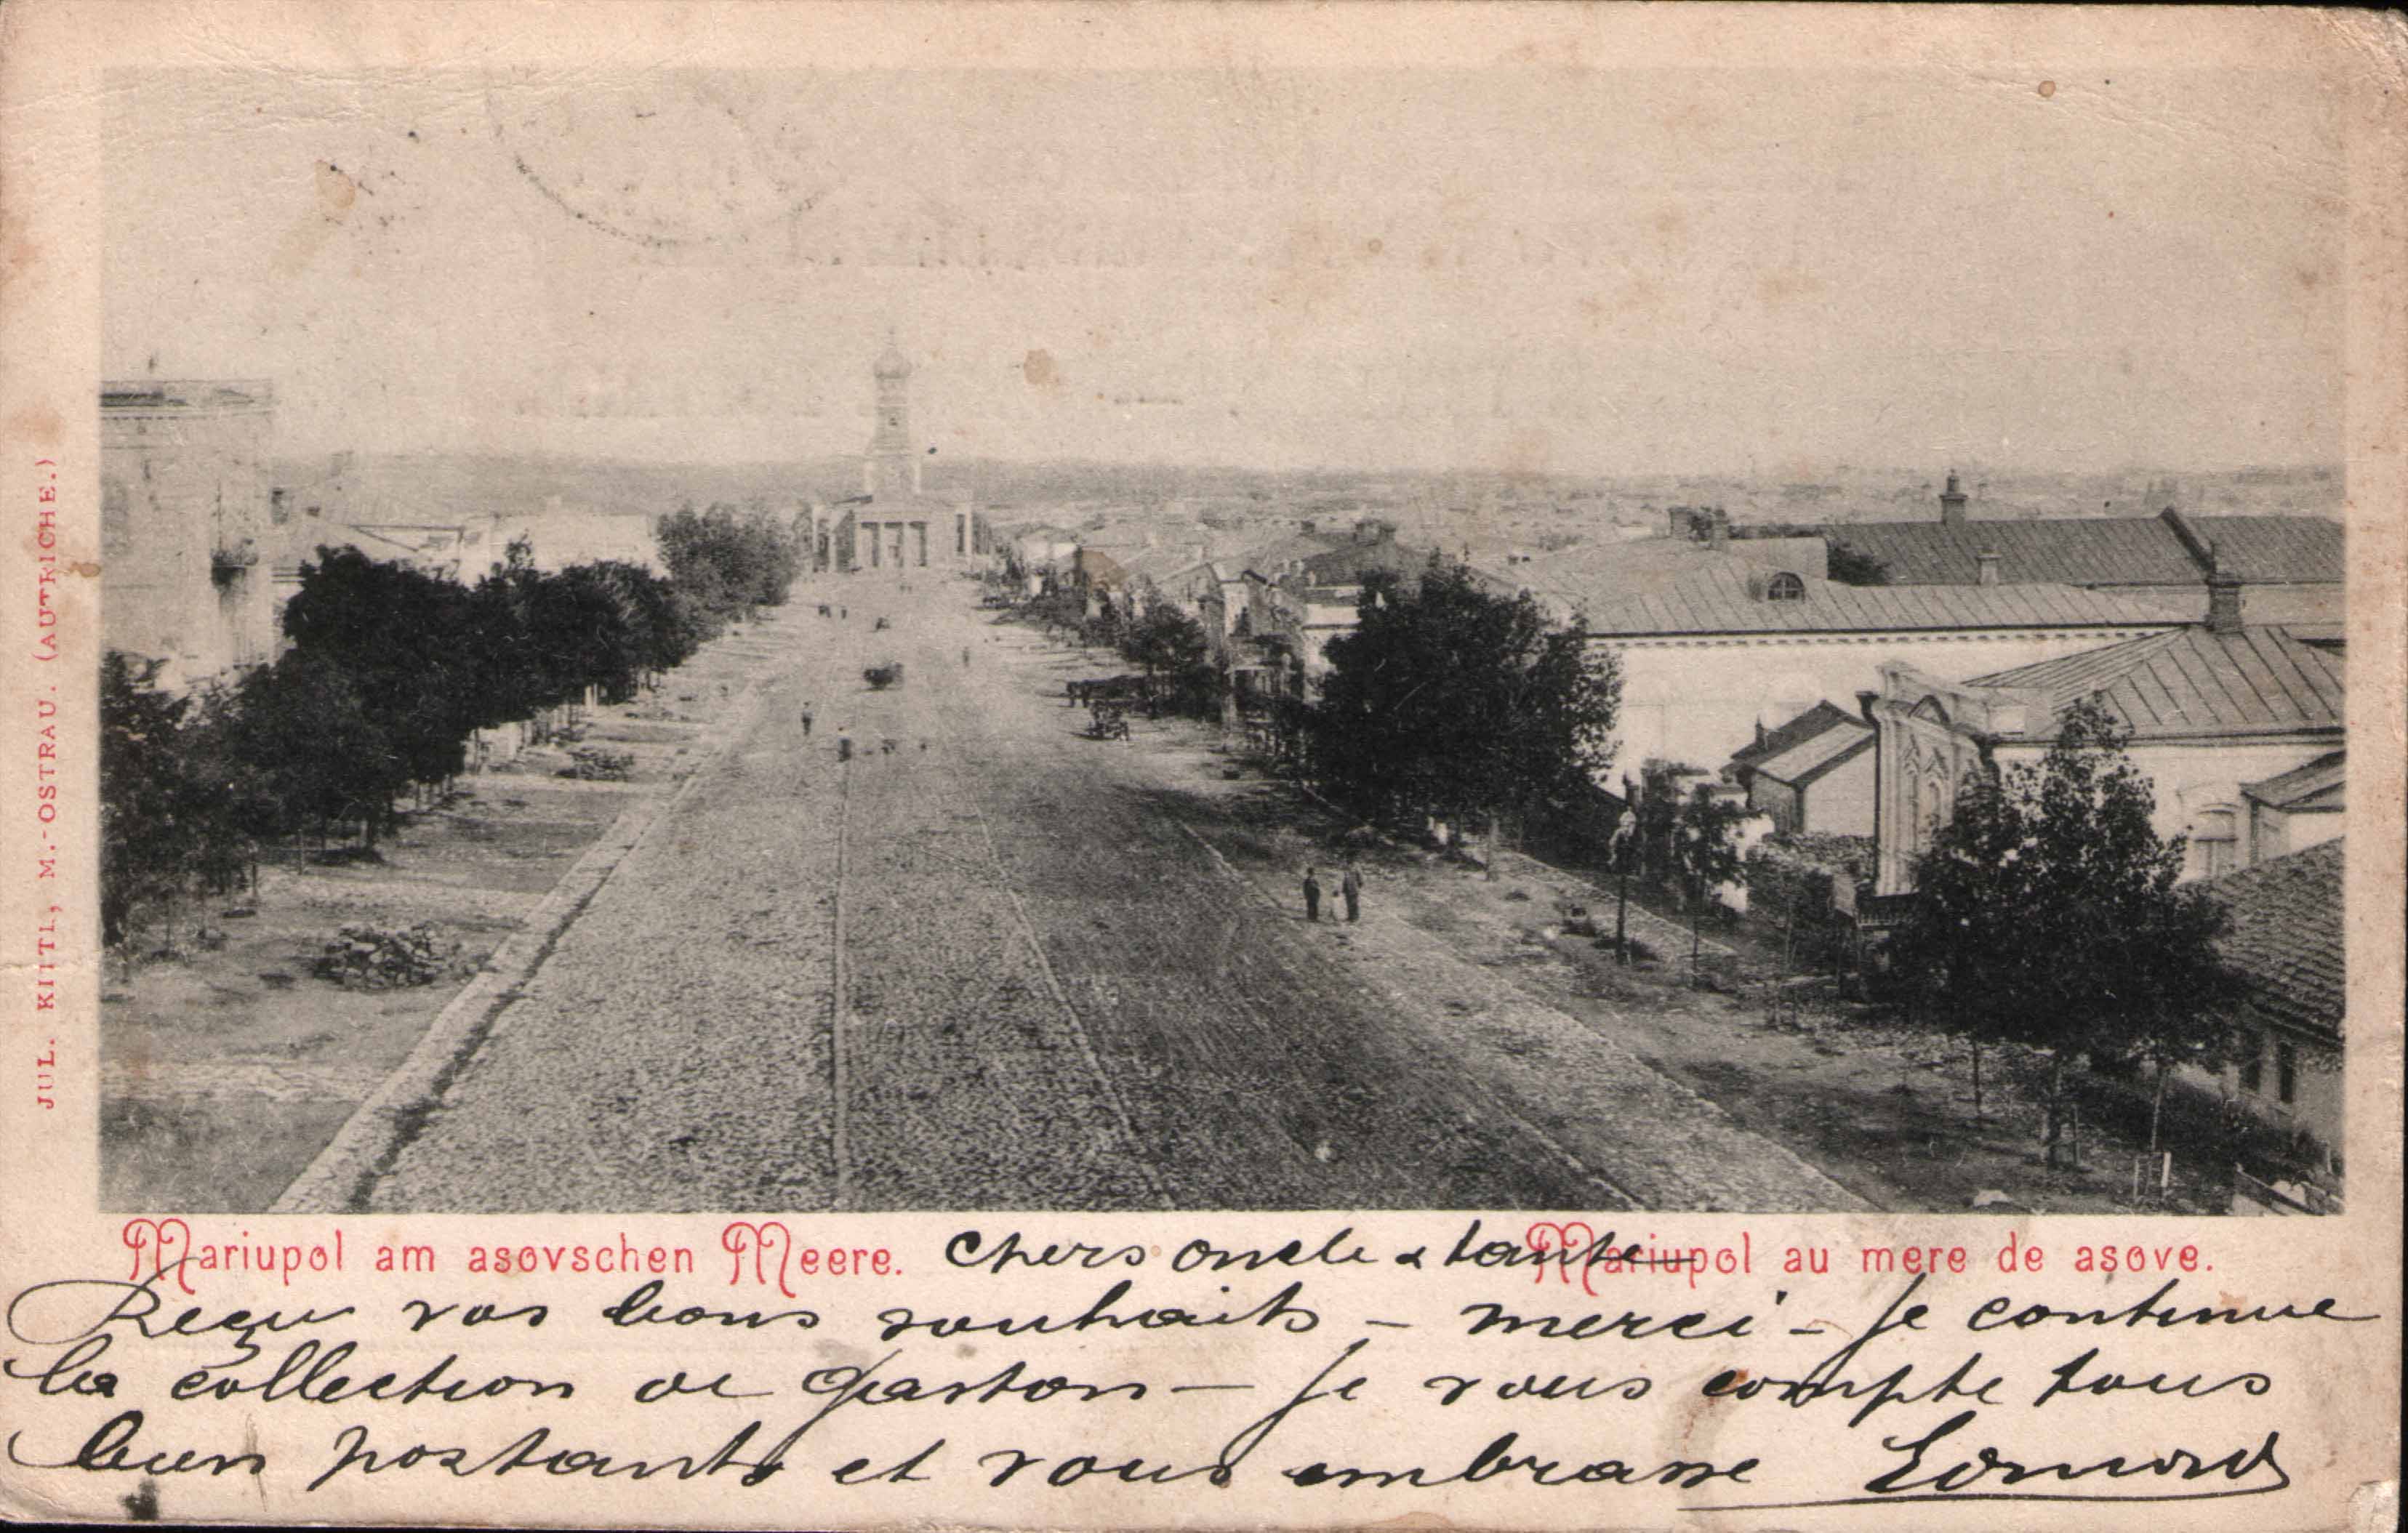 JUL. KITTL, M.-OSTRAU. (AUTRICHE.)
Mariupol am asovschen Meere.
Mariupol au mere de asove.
Chers oncle & tante
Reçu vos bons souhaits – merci – Je continue
la collection de Gaston – Je vous compte tous
bien portants et vous embrasse Edmond